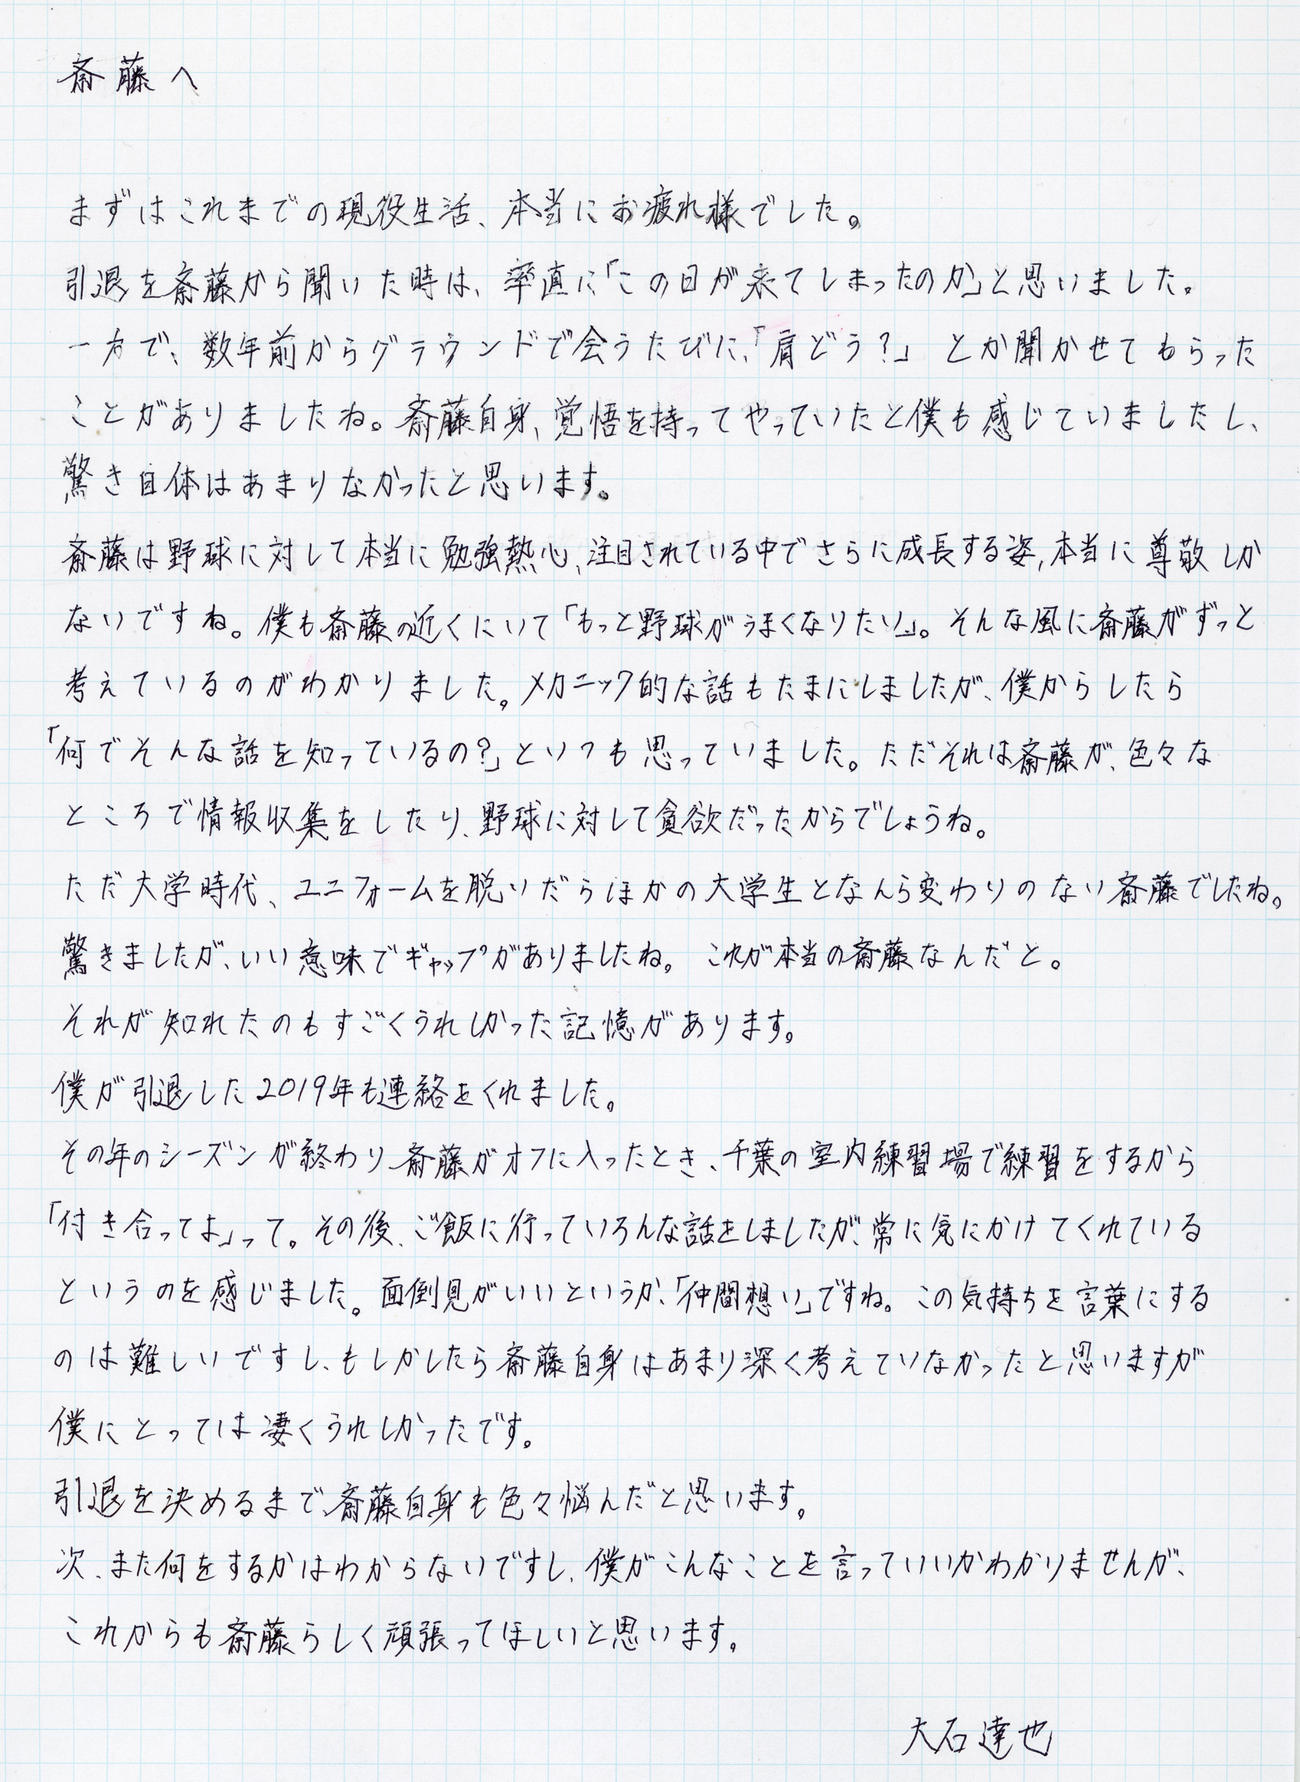 斎藤へ
まずはこれまでの現役生活、本当にお疲れ様でした。
引退を斎藤から聞いた時は、率直に「この日が来てしまったのか」と思いました。
一方で、数年前からグラウンドで会うたびに、「肩どう？」とか聞かせてもらった
ことがありましたね。斎藤自身、覚悟を持ってやっていたと僕も感じていましたし、
驚き自体はあまりなかったと思います。
斎藤は野球に対して本当に勉強熱心、注目されている中でさらに成長する姿、本当に尊敬しか
ないですね。僕も斎藤の近くにいて「もっと野球がうまくなりたい」。そんな風に斎藤がずっと
考えているのがわかりました。メカニック的な話もたまにしましたが、僕からしたら
「何でそんな話を知っているの？」といつも思っていました。ただそれは斎藤が、色々な
ところで情報収集をしたり、野球に対して貪欲だったからでしょうね。
ただ大学時代、ユニフォームを脱いだらほかの大学生となんら変わりのない斎藤でしたね。
驚きましたが、いい意味でギャップがありましたね。これが本当の斎藤なんだと。
それが知れたのもすごくうれしかった記憶があります。
僕が引退した2019年も連絡をくれました。
その年のシーズンが終わり、斎藤がオフに入ったとき、千葉の室内練習場で練習をするから
「付き合ってよ」って。その後、ご飯に行っていろんな話をしましたが、常に気にかけてくれている
というのを感じました。面倒見がいいというか、「仲間想い」ですね。この気持ちを言葉にする
のは難しいですし、もしかしたら斎藤自身はあまり深く考えていなかったと思いますが
僕にとっては凄くうれしかったです。
引退を決めるまで、斎藤自身も色々悩んだと思います。
次、また何をするかはわからないですし、僕がこんなことを言っていいかわかりませんが、
これからも斎藤らしく頑張ってほしいと思います。
大石達也